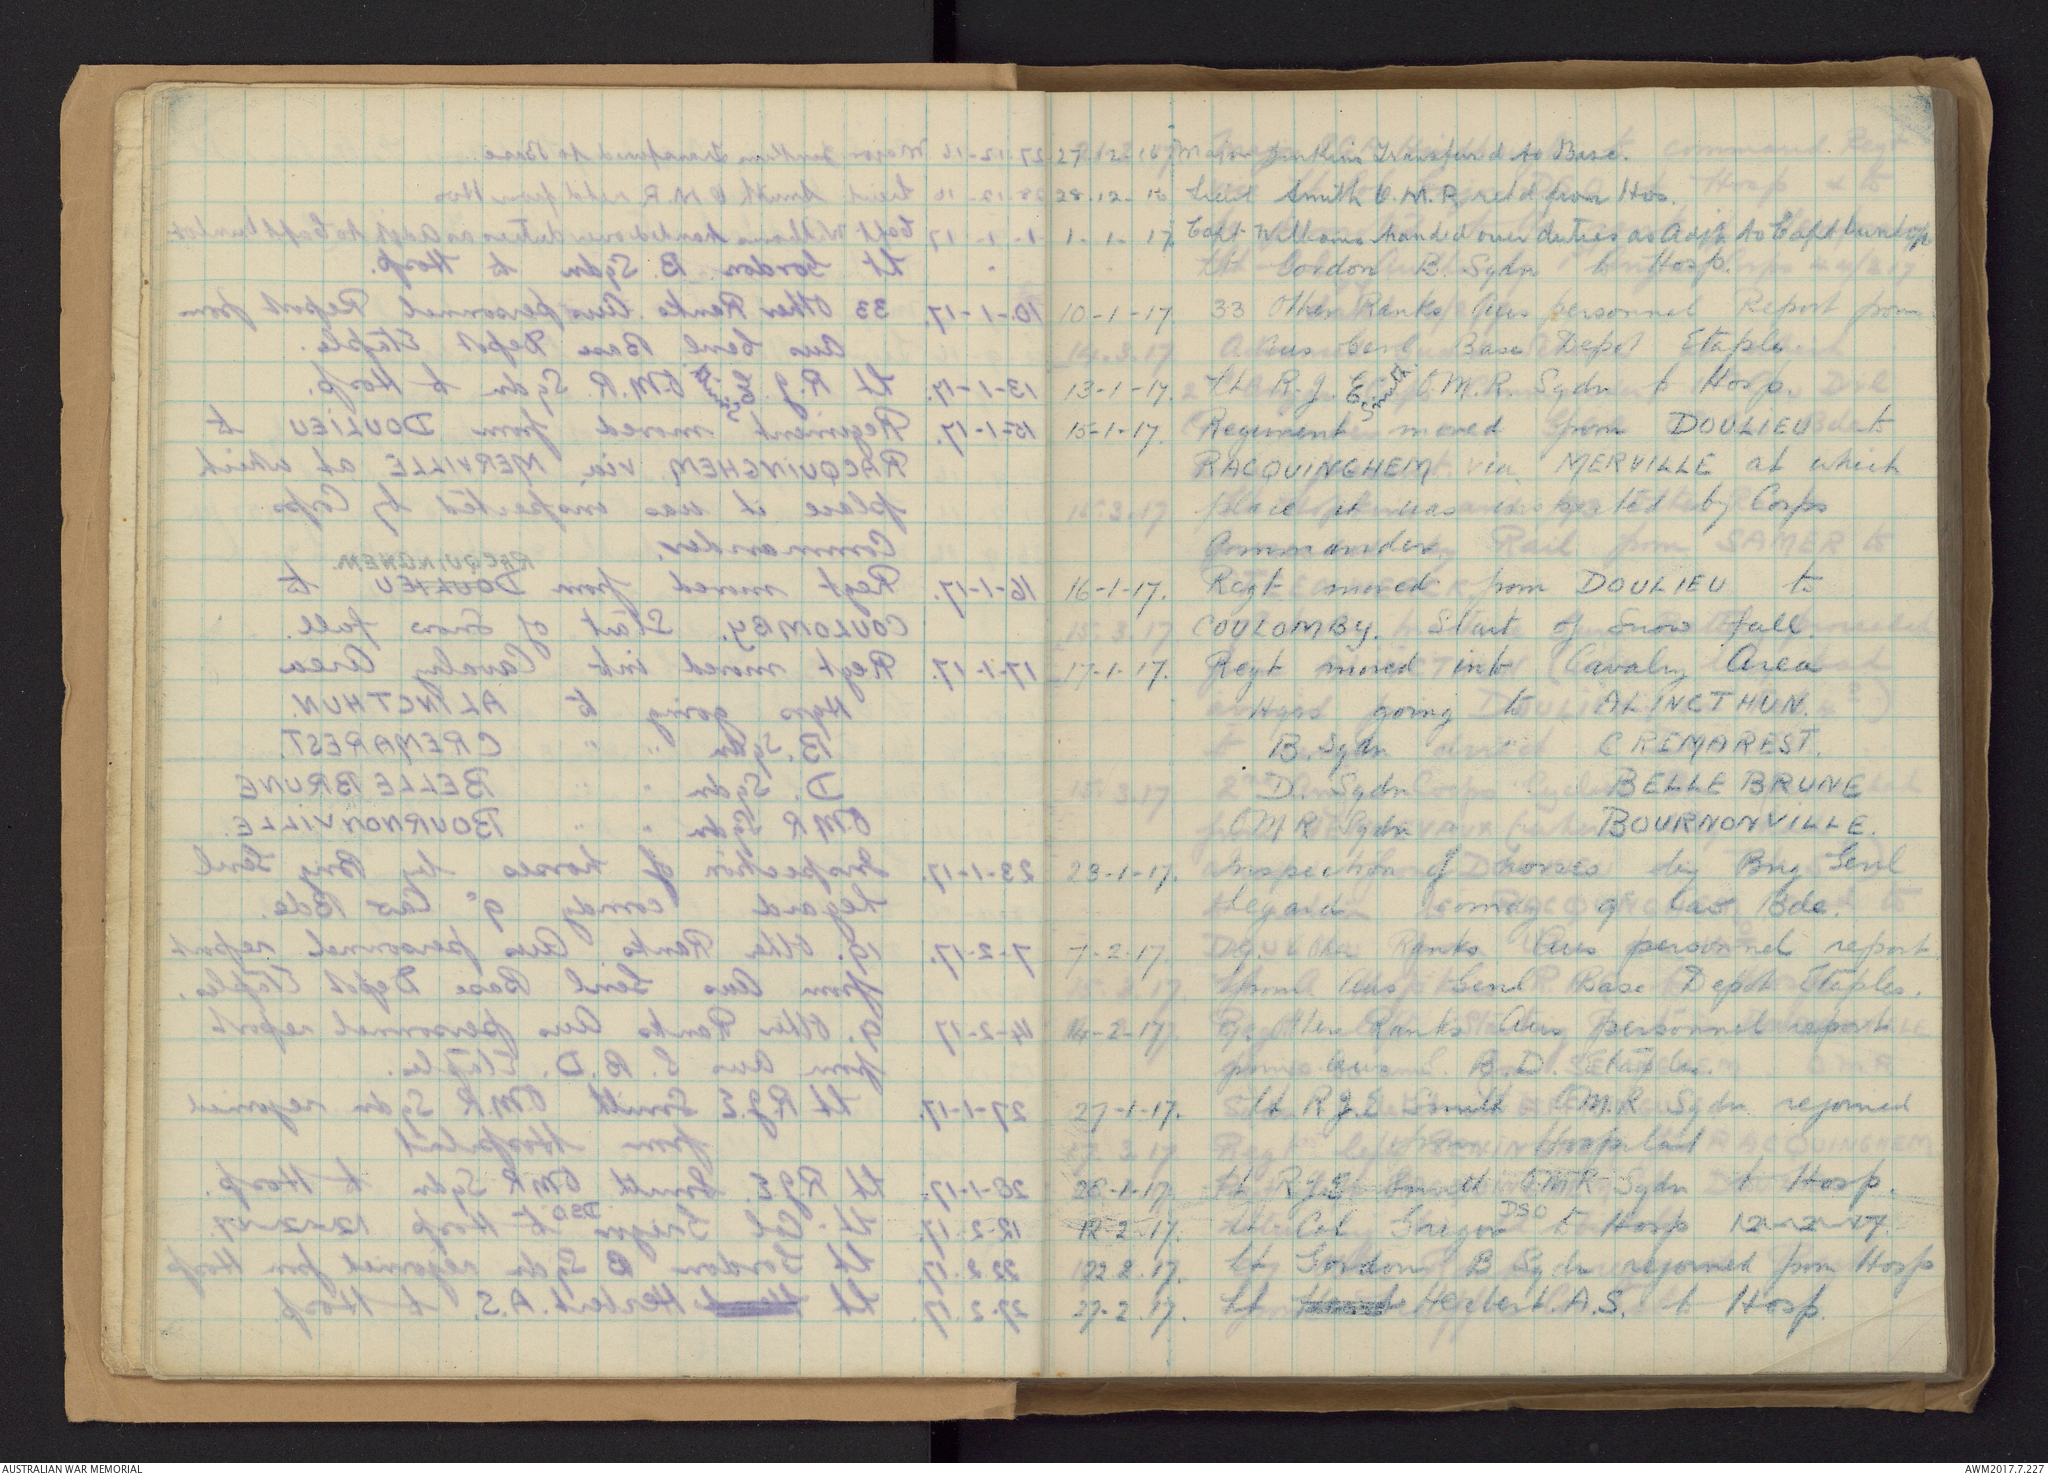 27-12-16 Major Jenkins Transferred to Base.
28-12-16 Lieut Smith O.M.R retd from Hos.
1-1-17 Capt Williams handed over duties as Adjt to Capt Dunlop
Lt Gordon B. Sqdn to Hosp.
10-1-17. 33 Other Ranks Aus personnel Report from
Aus Genl Base Depot Etaples.
13-1-17. Lt R. J. E. Smith O.M.R. Sqdn to Hosp.
15-1-17. Regiment moved from DOULIEU to
RACQUINGHEM via MERVILLE at which
place it was inspected by Corps
Commander.
16-1-17. Regt moved from DOULIEU to
COULOMBY. Start of Snow fall.
17-1-17. Regt moved into Cavalry Area
Hqrs going to ALINCTHUN.
B. Sqdn CREMAREST.
D. Sqdn BELLE BRUNE
O M R Sqdn BOURNONVILLE.
23-1-17. Inspection of horses by Brig Genl
Legard comdg 9th Cav Bde.
7-2-17. 19. Other Ranks Aus personnel report
from Aus Genl Base Depot Etaples.
14-2-17. 9. Other Ranks Aus personnel report
from Aus G. B. D. Etaples.
27-1-17. Lt R J E Smith O.M.R Sqdn rejoined
from Hospital
28-1-17. Lt R J E Smith OMR Sqdn to Hosp.
12-2-17. Lt. Col Gregor DSO to Hosp 12-2-17.
22.2.17. Lt Gordon B Sqdn rejoined from Hosp
27-2.17. Lt Herbert. A.S. to Hosp.
RACQUINGHEM.
AUSTRALIAN WAR MEMORIAL
AWM2017.7.227